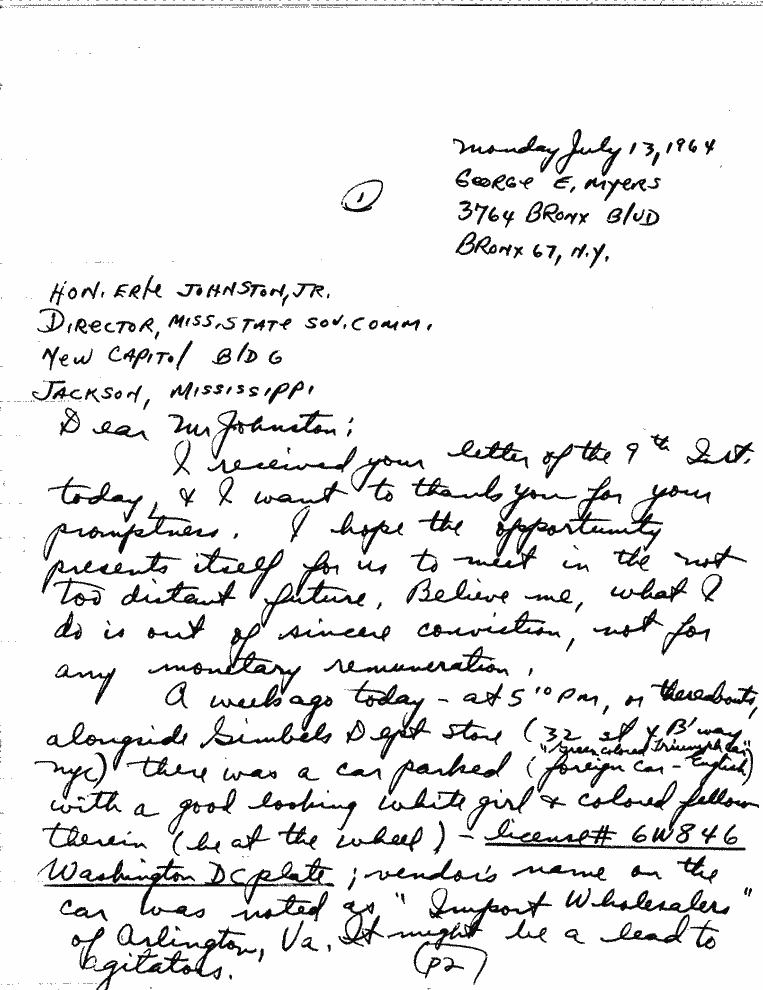 Monday July 13, 1964
George E. Myers
①
3764 Bronx Blvd
Bronx 67, N.Y.
Hon. Erle Johnston, Jr.
Director, Miss. State Sov. Comm.
New Capitol Bldg
Jackson, Mississippi
Dear Mr Johnston;
I received your letter of the 9th Inst.
today, & I want to thank you for your
promptness. I hope the opportunity
presents itself for us to meet in the not
too distant future. Believe me, what I
do is out of sincere conviction, not for
any monetary remuneration.
A week ago today - at 5:10 PM, or thereabouts,
alongside Gimbels Dept Store (32 st & B'way
"green colored Triumph car"
NYC) there was a car parked (foreign car - English)
with a good looking white girl & colored fellow
therein (he at the wheel) - license# 6W846
Washington DC plate; vendor's name on the
car was noted as "Import Wholesalers"
of Arlington, Va. It might be a lead to
agitators.
(P2)